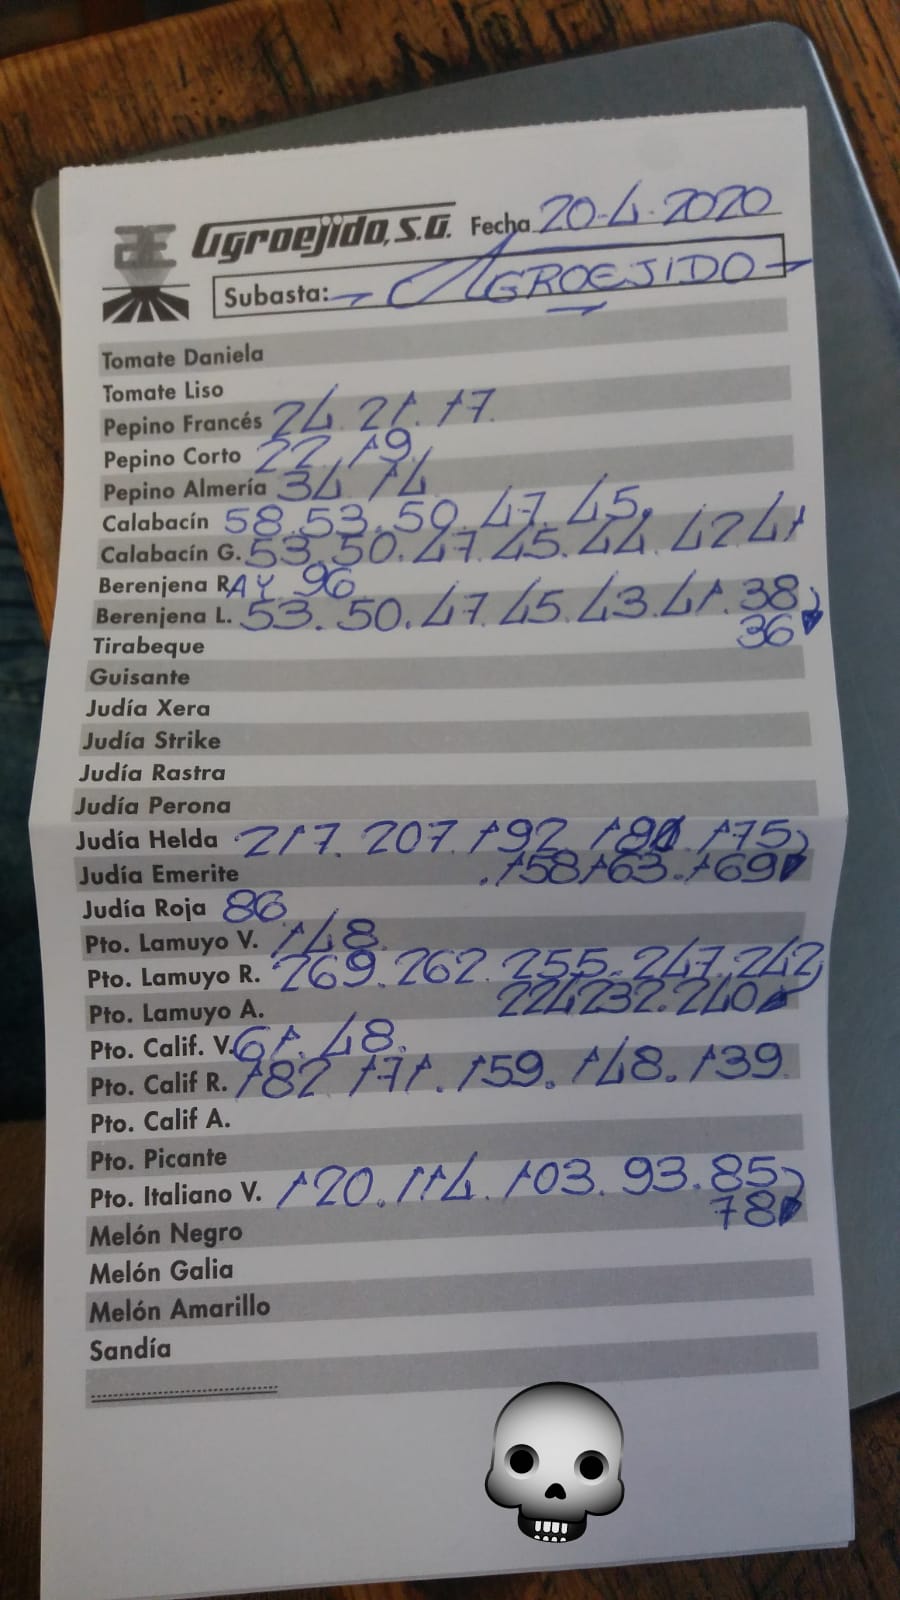 Agroejido, S.A. Fecha 20-4-2020
Subasta: - AGROEJIDO -
Tomate Daniela
Tomate Liso
Pepino Francés 24. 21. 17.
Pepino Corto 22. 19.
Pepino Almería 34. 14.
Calabacín 58. 53. 50. 47. 45.
Calabacín G. 53. 50. 47. 45. 44. 42. 41
Berenjena R. AY. 96
Berenjena L. 53. 50. 47. 45. 43. 41. 38
Tirabeque 36
Guisante
Judía Xera
Judía Strike
Judía Rastra
Judía Perona
Judía Helda 217. 207. 192. 175
Judía Emerite .158.163.169
Judía Roja 86
Pto. Lamuyo V. 148.
Pto. Lamuyo R. 269. 262. 255. 247. 242
Pto. Lamuyo A. 224.232.240
Pto. Calif. V. 61. 48.
Pto. Calif R. 182. 171. 159. 148. 139
Pto. Calif A.
Pto. Picante
Pto. Italiano V. 120. 114. 103. 93. 85
78
Melón Negro
Melón Galia
Melón Amarillo
Sandía